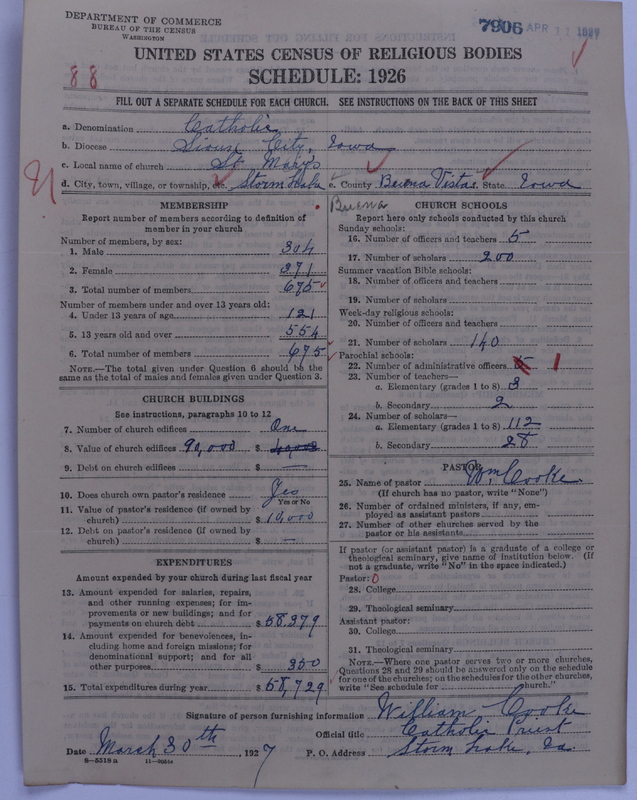 DEPARTMENT OF COMMERCE
BUREAU OF THE CENSUS
WASHINGTON
7906 APR 11 1927
UNITED STATES CENSUS OF RELIGIOUS BODIES
SCHEDULE: 1926
88
FILL OUT A SEPARATE SCHEDULE FOR EACH CHURCH. SEE INSTRUCTIONS ON THE BACK OF THIS SHEET
a. Denomination Catholic
b. Diocese Sioux City, Iowa
c. Local name of church St Marys
d. City, town, village, or township, etc. Storm Lake e. County Buena Vista State Iowa
Buena
MEMBERSHIP
Report number of members according to definition of
member in your church
Number of members, by sex:
1. Male 304
2. Female 371
3. Total number of members 675
Number of members under and over 13 years old:
4. Under 13 years of age 121
5. 13 years old and over 554
6. Total number of members 675
NOTE.—The total given under Question 6 should be the
same as the total of males and females given under Question 3.
CHURCH BUILDINGS
See instructions, paragraphs 10 to 12
7. Number of church edifices One
8. Value of church edifices 90,000 $
9. Debt on church edifices $ —
10. Does church own pastor's residence Yes
Yes or No
11. Value of pastor's residence (if owned by
church) $ 10,000
12. Debt on pastor's residence (if owned by
church) $ —
EXPENDITURES
Amount expended by your church during last fiscal year
13. Amount expended for salaries, repairs,
and other running expenses; for im-
provements or new buildings; and for
payments on church debt $ 58,379
14. Amount expended for benevolences, in-
cluding home and foreign missions; for
denominational support; and for all
other purposes $ 350
15. Total expenditures during year $ 58,729
CHURCH SCHOOLS
Report here only schools conducted by this church
Sunday schools:
16. Number of officers and teachers 5
17. Number of scholars 200
Summer vacation Bible schools:
18. Number of officers and teachers
19. Number of scholars
Week-day religious schools:
20. Number of officers and teachers
21. Number of scholars 140
Parochial schools:
22. Number of administrative officers 5 1
23. Number of teachers—
a. Elementary (grades 1 to 8) 3
b. Secondary 2
24. Number of scholars—
a. Elementary (grades 1 to 8) 112
b. Secondary 28
PASTOR
25. Name of pastor Wm. Cooke
(If church has no pastor, write "None")
26. Number of ordained ministers, if any, em-
ployed as assistant pastors
27. Number of other churches served by the
pastor or his assistants
If pastor (or assistant pastor) is a graduate of a college or
theological seminary, give name of institution below. (If
not a graduate, write "No" in the space indicated.)
Pastor: 0
28. College
29. Theological seminary
Assistant pastor:
30. College
31. Theological seminary
NOTE.—Where one pastor serves two or more churches,
Questions 28 and 29 should be answered only on the schedule
for one of the churches; on the schedules for the other churches,
write "See schedule for church."
Signature of person furnishing information William Cooke
Official title Catholic Priest
Date March 30th, 1927 P. O. Address Storm Lake, Ia.
8-5518a